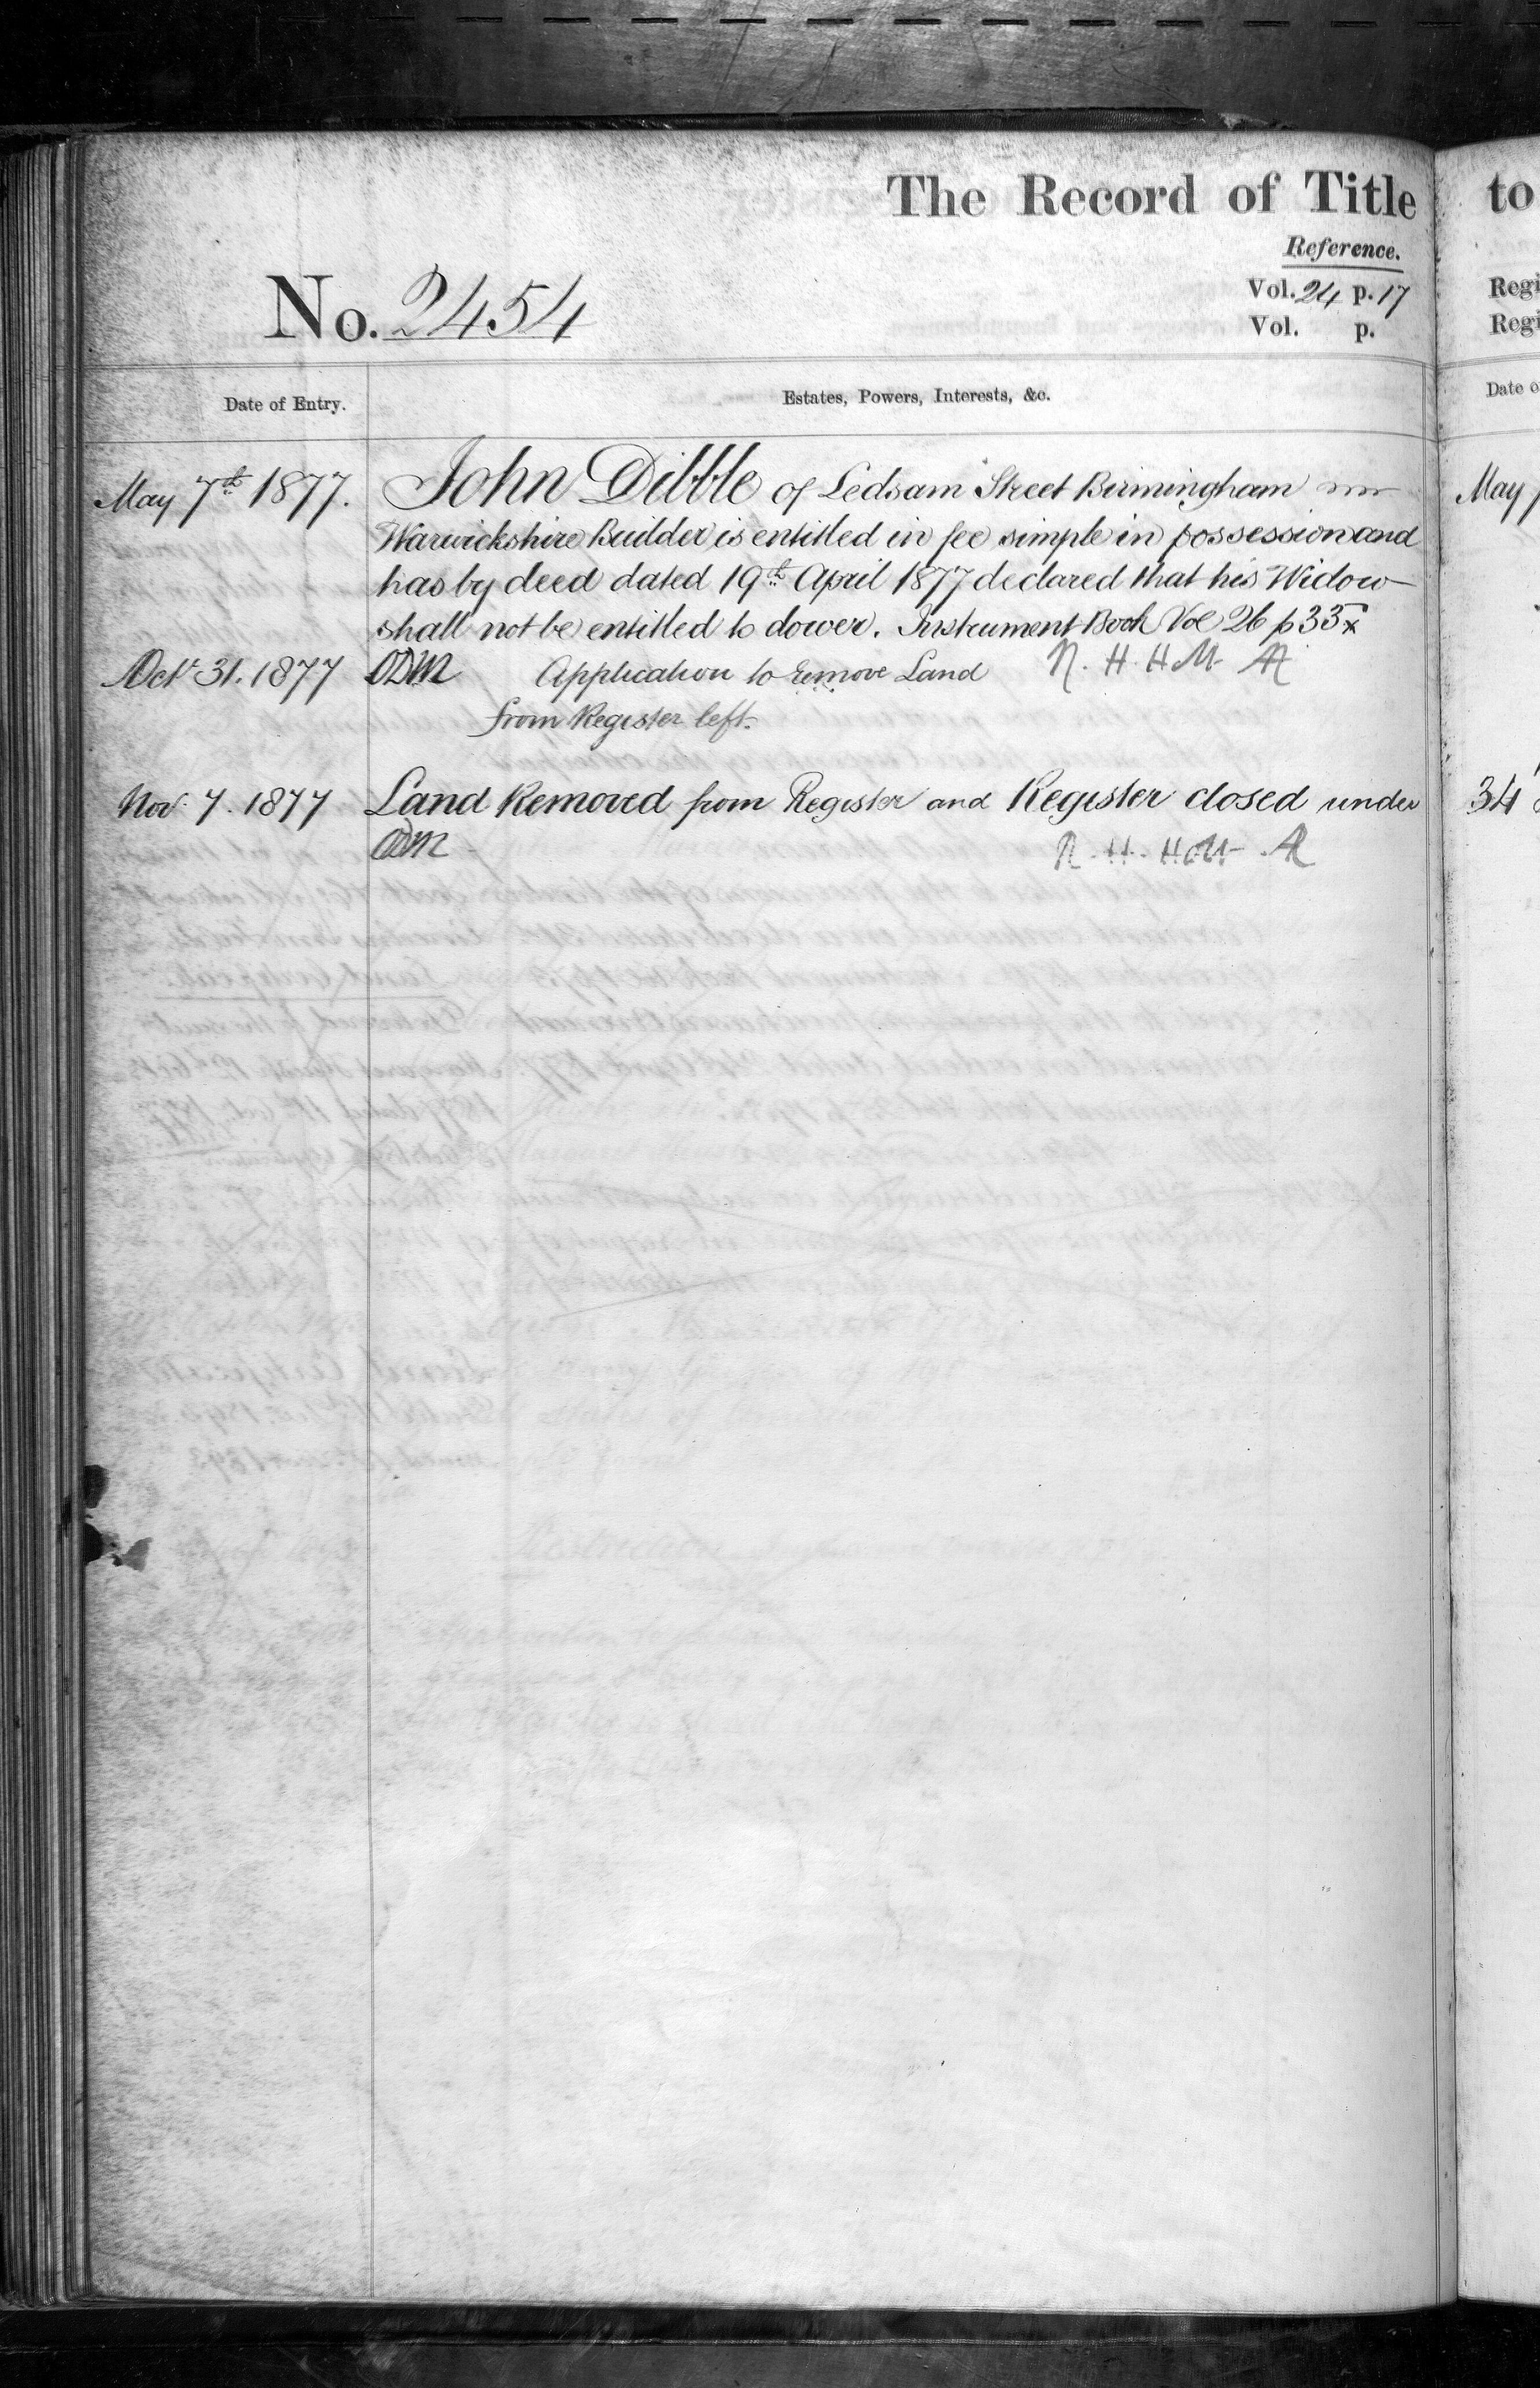 The Record of Title
Reference.
No. 2454
Vol. 24 p. 17
Vol. p.
Date of Entry.
Estates, Powers, Interests, &c.
May 7th 1877.
John Dibble of Ledsam Street Birmingham
Warwickshire Builder is entitled in fee simple in possession and
has by deed dated 19th April 1877 declared that his Widow
shall not be entitled to dower. Instrument Book Vol 26 p 335
Oct 31. 1877
Application to remove Land
R. H. H
from Register left.
Nov. 7. 1877
Land Removed from Register and Register closed under
R. H. H
to
Regi
Regi
Date o
May
34